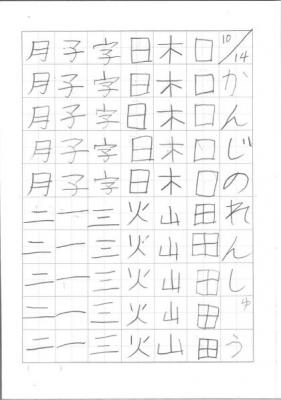 10/14かんじのれんしゅう
口口口口口田田田田田
木木木木木山山山山山
日日日日日火火火火火
字字字字字三三三三三
子子子子子一一一一一
月月月月月二二二二二